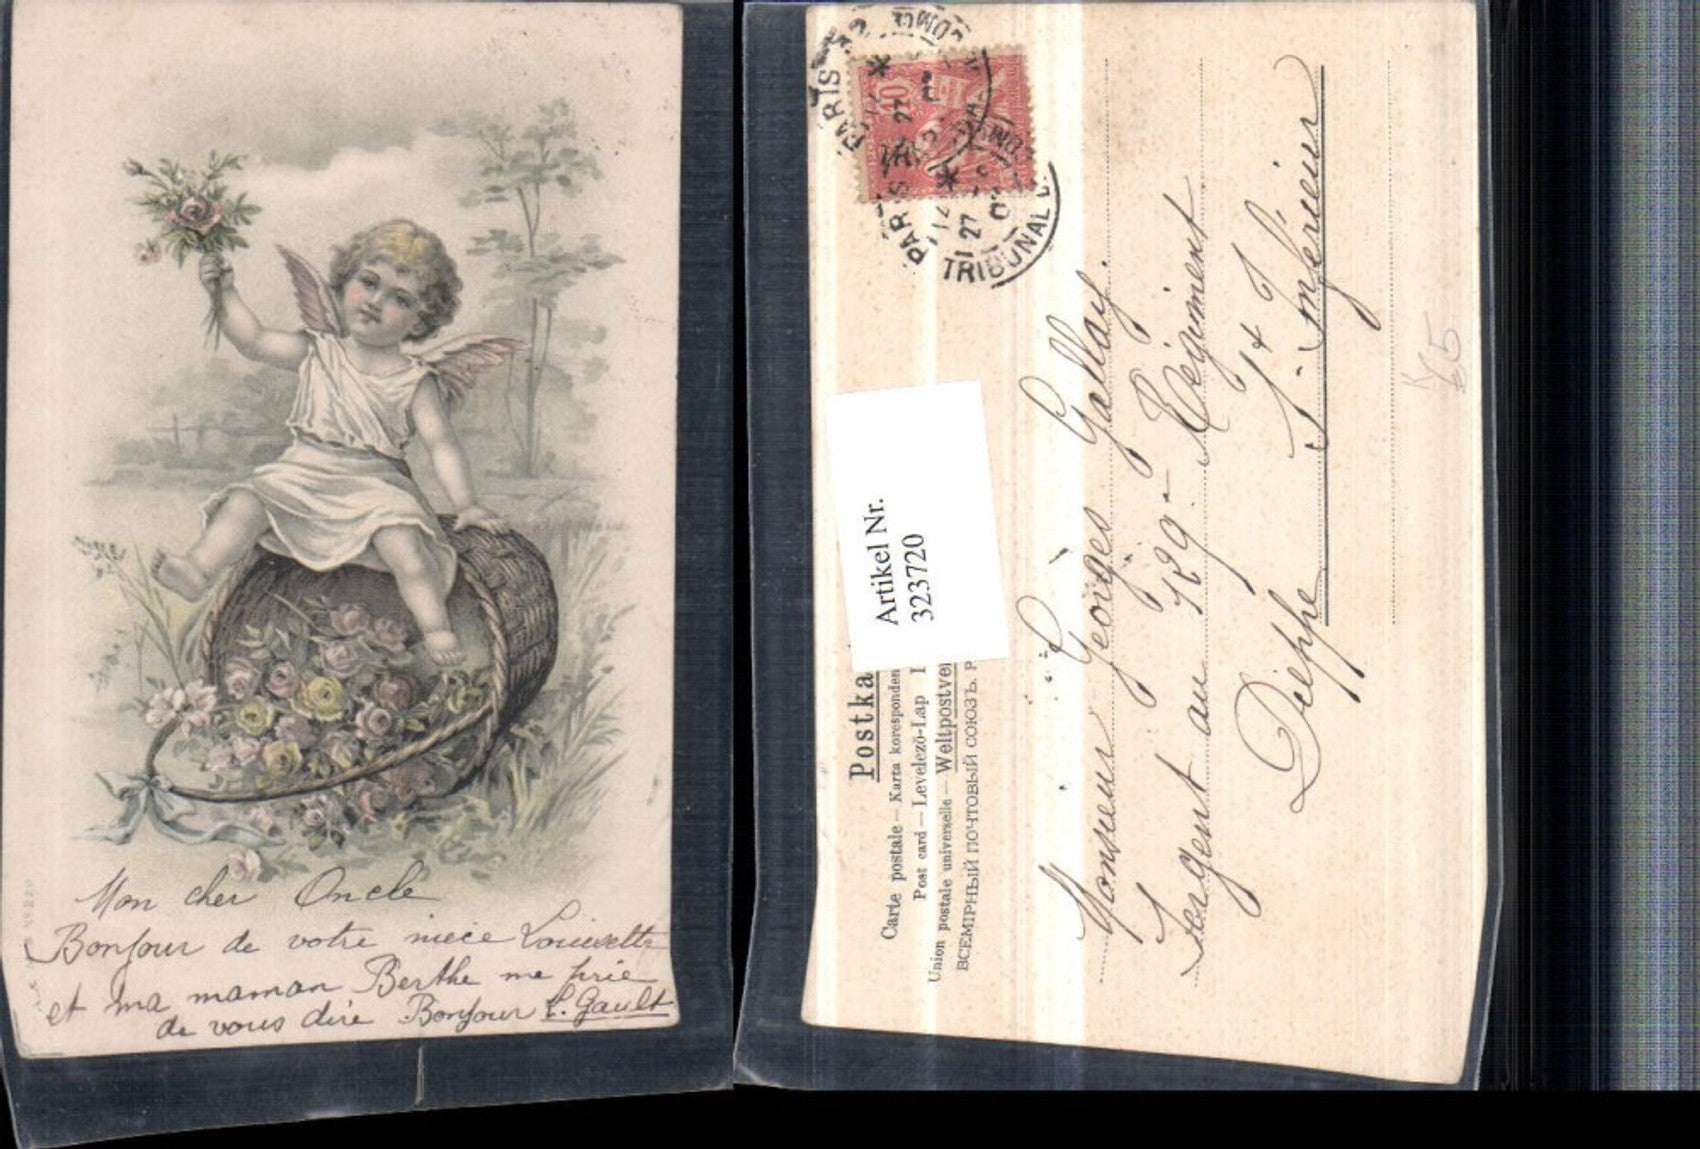 Mon cher Oncle
Bonjour de votre niece Louisette
et ma maman Berthe me prie
de vous dire Bonjour L. Gault
Nº 220
Artikel Nr.
323720
Postka
Carte postale — Karta koresponden
Post card — Levelezö-Lap
Union postale universelle — Weltpostve
ВСЕМІРНЫЙ ПОЧТОВЫЙ СОЮЗЪ. Р
PARIS
PARIS
TRIBUNAL
27
10
Monsieur Georges Gallay.
Sergent au 129 - Régiment
Dieppe S. Inférieur
65